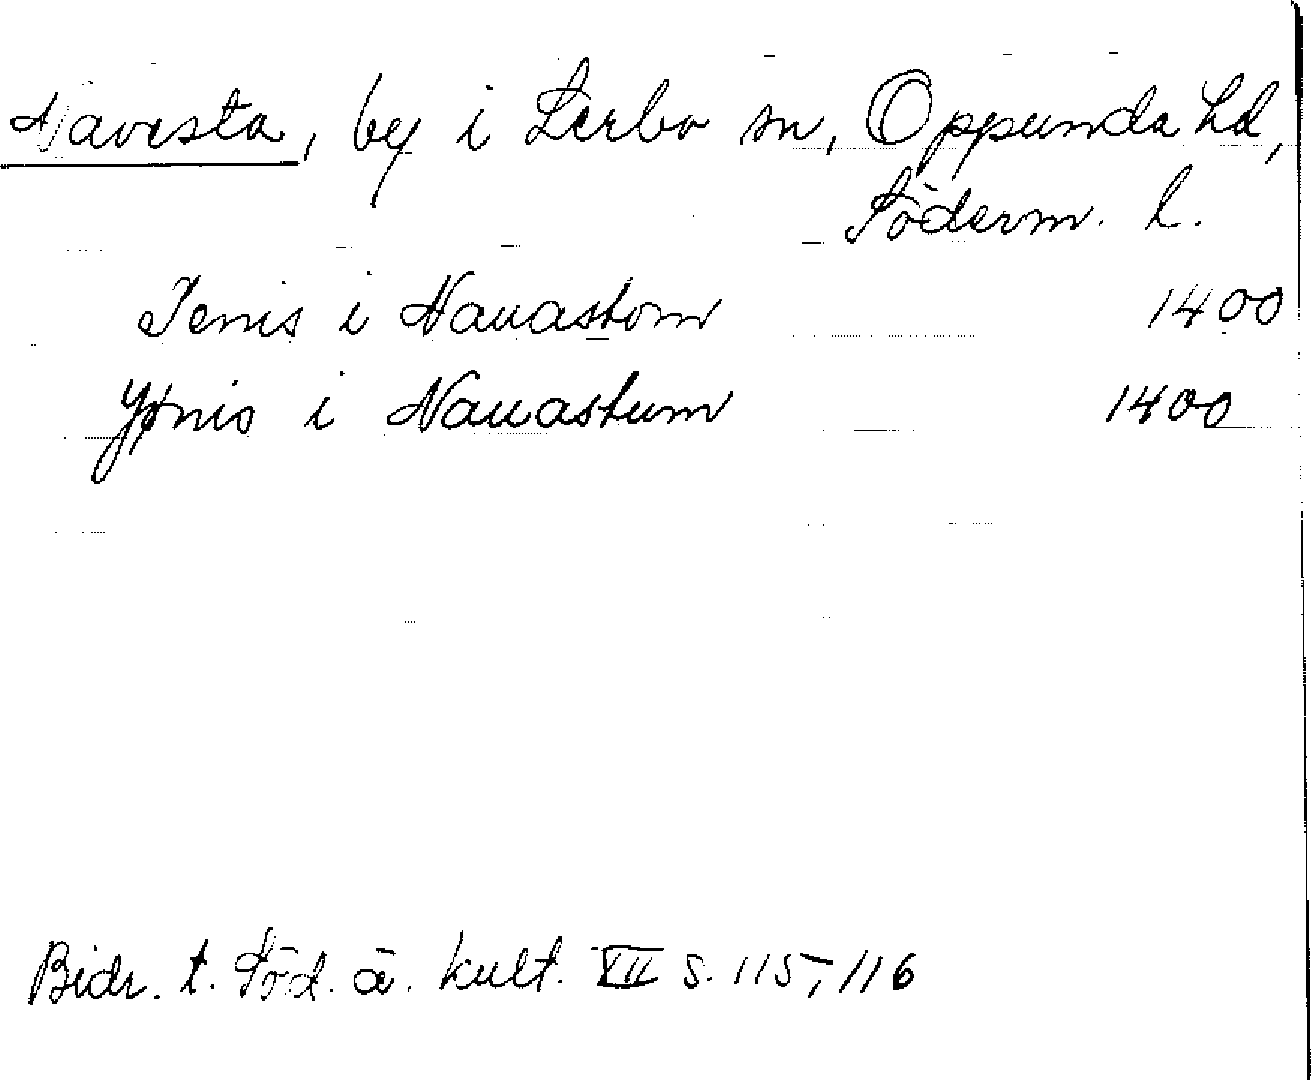 Navesta, by i Lerbo sn, Oppunda hd,
Söderm. l.
Jenis i Nauastom 1400
i Nauastum 1400
Bidr. t. Söd. ä. kult. XII s. 115, 116